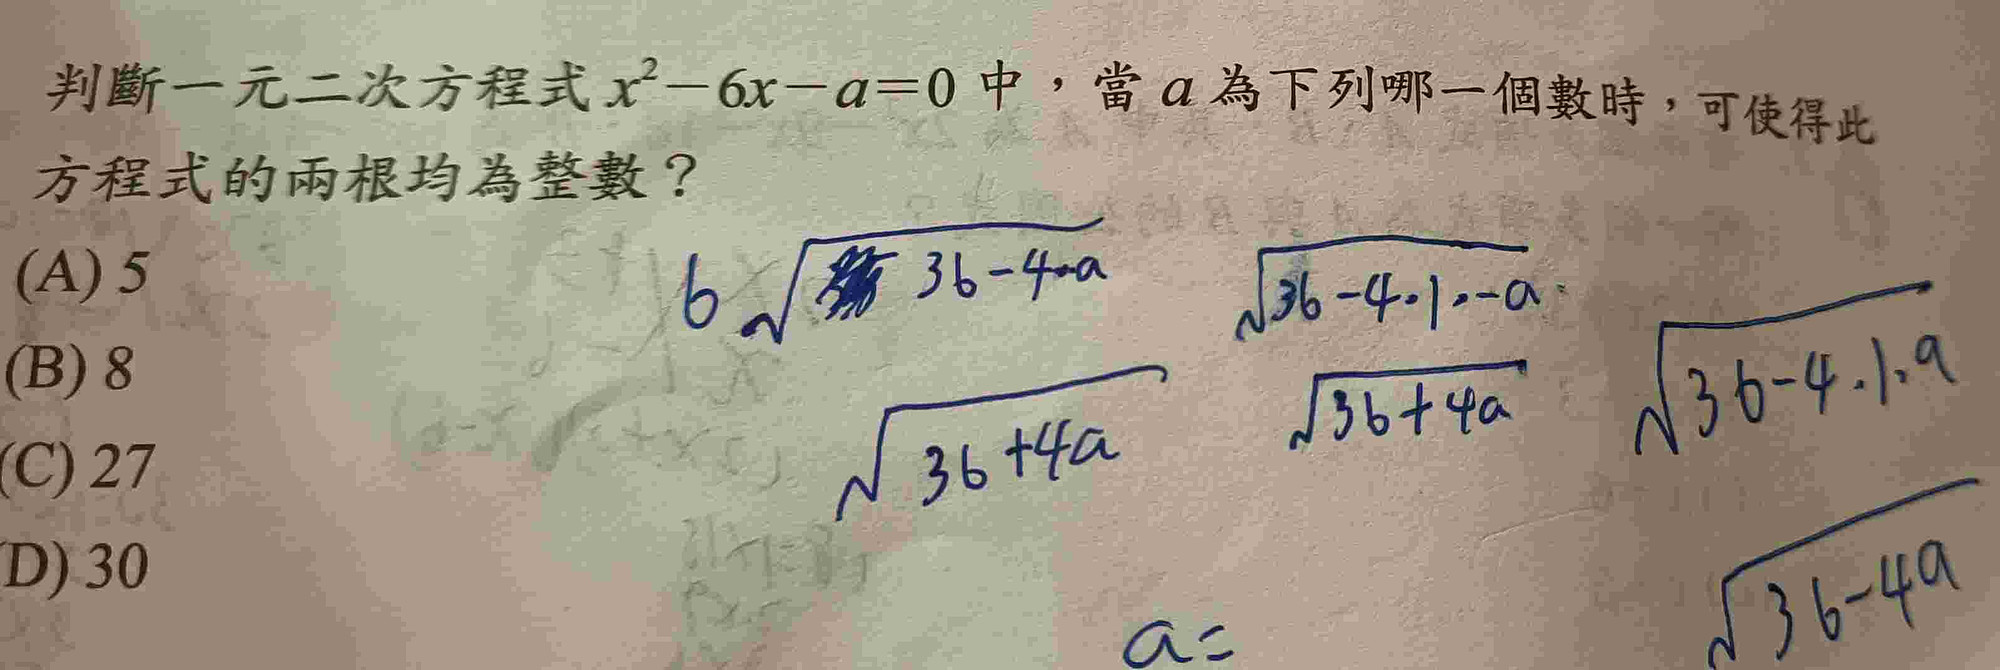 判斷一元二次方程式 x²－6x－a＝0 中，當 a 為下列哪一個數時，可使得此
方程式的兩根均為整數？
(A) 5
(B) 8
(C) 27
(D) 30
6 √36-4·a
√36-4·1·-a
√36-4·1·a
√36+4a
√36+4a
√36-4a
a=